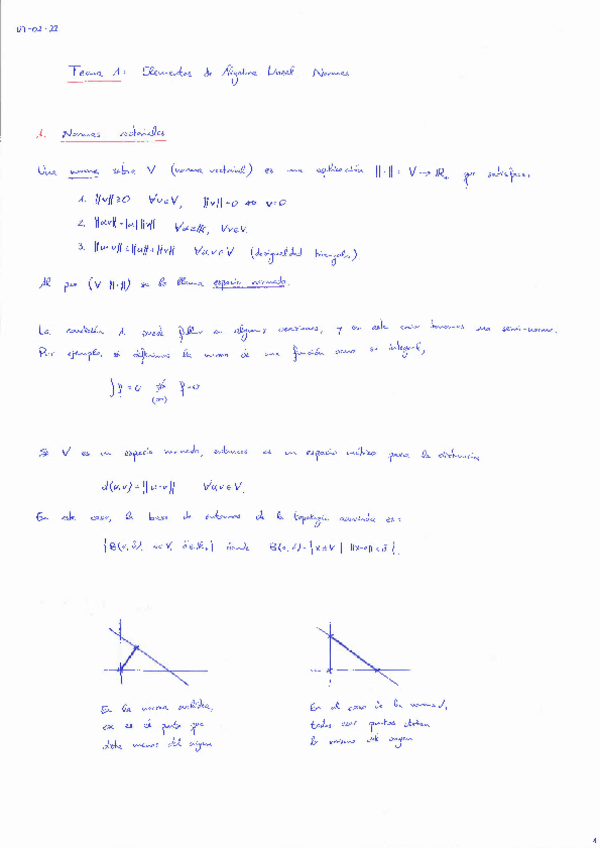 07-02-22
Tema 1: Elementos de Álgebra Lineal Normas
1. Normas vectoriales
Una norma sobre V (norma vectorial) es una aplicación ||·|| : V → ℝ₊ que satisface:
1. ||v|| ≥ 0 ∀v∈V, ||v|| = 0 ⇔ v=0
2. ||αv|| = |α| ||v|| ∀α∈𝕂, ∀v∈V.
3. ||u+v|| ≤ ||u|| + ||v|| ∀u,v∈V (desigualdad triangular)
Al par (V, ||·||) se le llama espacio normado.
La condición 1. puede fallar en algunas ocasiones, y en este caso tenemos una semi-norma.
Por ejemplo, si definimos la norma de una función como su integral,
∫f = 0 ⇏ f=0
Si V es un espacio normado, entonces es un espacio métrico para la distancia
d(u,v) = ||u-v|| ∀u,v∈V.
En este caso, la base de entornos de la topología es:
donde B(v,δ) = {x∈V | ||x-v|| < δ}.
En la norma euclídea,
ese es el punto que
dista menos del origen
En el caso de la norma 1,
todos esos puntos distan
lo mismo del origen
1